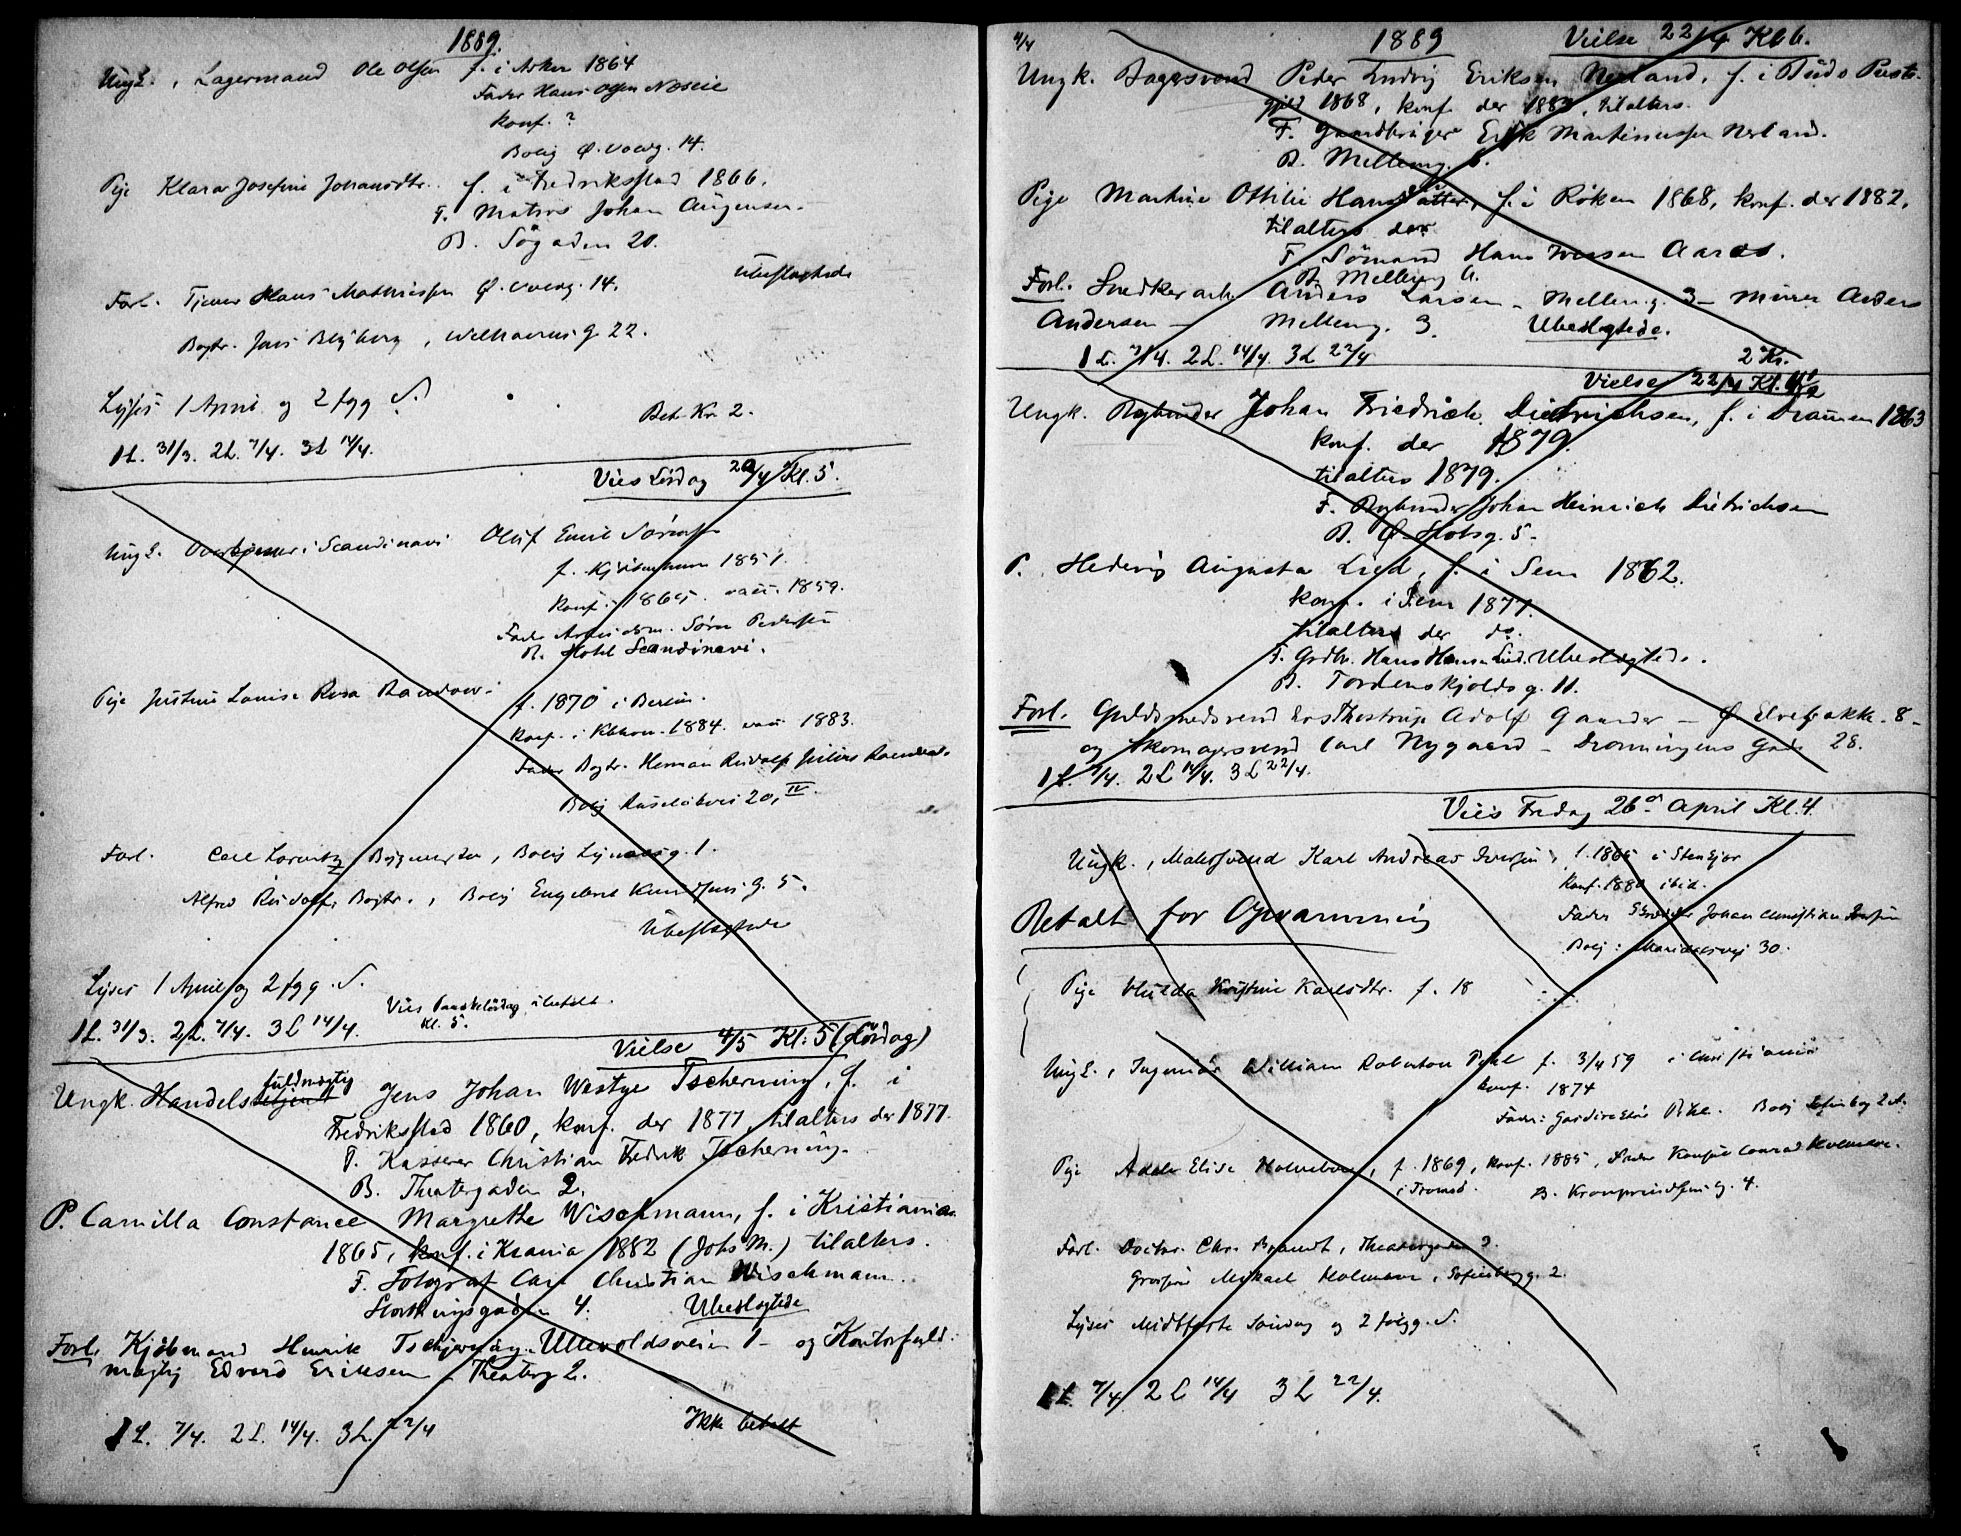 1889.
Ungk., Lagermand Ole Olsen f. i Asker 1864
Fader Hans Olsen Nøseie
Konf. ?
Bolig Ø. Voldg. 14.
Pige Klara Josefine Johansdtr. f. i Fredriksstad 1866.
F. Matros Johan
B. Søgaden 20.
Ubeslægtede
Forl. Tjener Hans Mathiessen Ø. Voldg. 14.
Bogtr. Jens Blyberg, Welhavens G. 22.
Lyses 1 April og 2 følgg S.
Bet. Kr. 2.
1 L. 31/3. 2 L. 7/4. 3 L 14/4.
Vies Lördag 20/4 Kl. 5.
Ungk. Overtjener i Scandinavie Oluf Emil Sørensen
f. Kjøbenhavn 1851.
Konf. 1865. vacc. 1859.
Fader Arbeidsm. Sören Pedersen
B. Hotel Scandinavie.
Pige Justine Louise Rosa Randow
f. 1870 i Berlin.
Konf. i Kbhvn. 1884. vacc. 1883.
Fader Bogtr. Herman Rudolf Julius Randow
Bolig 20, IV.
Forl. Carl Lorentz, Bygmester, Bolig g. 1.
Alfred Rudolf, Bogtr., Bolig Engebret G. 5.
Ubeslægtede
Lyses 1 April og 2 følgg. S.
Vies Paaskelördag, ubetalt.
Kl. 5.
1 L. 31/3. 2 L. 7/4. 3 L 14/4.
Vielse 4/5 Kl. 5 (Lördag)
fuldmægtig
Ungk. Handelsbetjent Jens Johan Westye Tscherning, f. i
Fredriksstad 1860, konf. der 1877, tilalters der 1877.
F. Kasserer Christian Fredrik Tscherning.
B. Theatergaden 2.
P. Camilla Constance Margrethe Wischmann, f. i Kristiania
1865, konf. i Krania 1882 (Johs M.) tilalters.
F. Fotograf Carl Christian Wischmann.
Storthingsgaden 4. Ubeslægtede
Forl. Kjöbmand Henrik Tscherning. Ullevoldsveien 1 - og Kontorfuld-
mægtig Edvard Eriksen - Theaterg 2.
1 L. 7/4. 2 L. 14/4. 3 L. 22/4
Ikke betalt
4/4 1889 Vielse 22/4 Kl 6.
Ungk. Bagersvend Peder Ludvig Eriksen Nerland, f. i Buds Præste-
gjeld 1868, konf. der 1883, tilalters.
F. Gaardbruger Erik Martinussen Nerland.
B. Mellemg. 6.
Pige Martine Ottilie Hansdatter, f. i Röken 1868, konf. der 1882,
tilalters der
F. Sömand Hans Iversen Aaros.
B. Mellemg 6.
Forl. Snedkerarb. Anders Larsen - Mellemg. 3 - Murer Anders
Andersen - Mellemg. 3. Ubeslægtede.
1 L. 7/4. 2 L. 14/4. 3 L 22/4
2 Kr.
Vielse 22/4 Kl. 4 1/2
Ungk. Bogbinder Johan Friedrich Dietrichsen, f. i Drammen 1863
konf. der 1879.
tilalters 1879.
F. Bogbinder Johan Heinrich Dietrichsen
B. Ø. Slotsg. 5.
P. Hedevig Augusta Lied, f. i Sem 1862.
konf. i Sem 1877.
tilalters der do.
F. Grdbr. Hans Hansen Lied. Ubeslægtede.
B. Tordenskjolds g. 11.
Forl. Guldsmedsvend Adolf Gaarder - Ø. Elvebakke. 8 -
og Skomagersvend Carl Nygaard - Dronningens Gade 28.
1 L. 7/4. 2 L 14/4. 3 L 22/4.
Vies Fredag 26de April Kl. 4.
Ungk., Malersvend Karl Andreas Iversen, f. 1865 i Stenkjær
Konf. 1880 ibid.
Betalt for Opvarmning
Fader Johan Christian Iversen
Bolig: Maridalsvej 30.
Pige Hulda Kristine Karlsdtr. f. 18
Ungk., Ingeniör William Robertson Pihl f. 3/4 59 i Christiania
Konf. 1874
Fader: Pihl. Bolig
Pige Adele Elise Holmboe, f. 1869, konf. 1885, Fader Konsul Conrad Holmboe.
i Tromsö. B. Kronprindsens G. 4.
Forl. Doctor. Chr. Brandt, Theatergaden 2.
Mikael Holmboe, Sofienberg g. 2.
Lyses Midtfaste Söndag og 2 følgg. S.
1 L. 7/4 2 L 14/4 3 L 22/4.